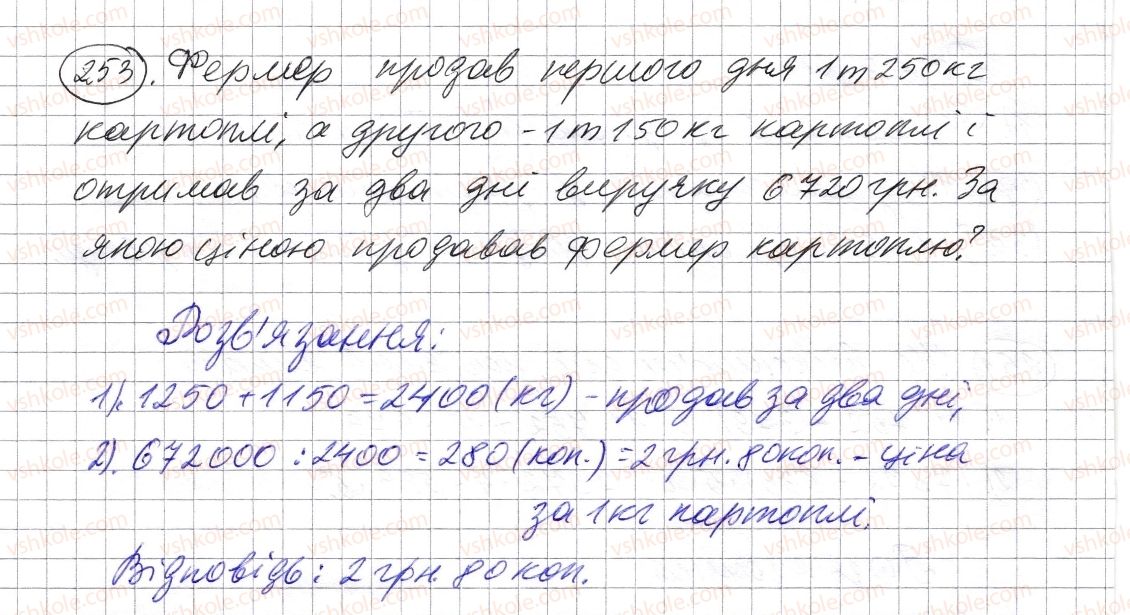 253. Фермер продав першого дня 1т 250кг
картоплі, а другого - 1т 150кг картоплі і
отримав за два дні виручку 6720грн. За
якою ціною продавав фермер картоплю?
Розв'язання:
1). 1250 + 1150 = 2400 (кг) - продав за два дні,
2). 672000 : 2400 = 280 (коп.) = 2 грн. 80коп. - ціна
за 1кг картоплі.
Відповідь: 2 грн. 80 коп.